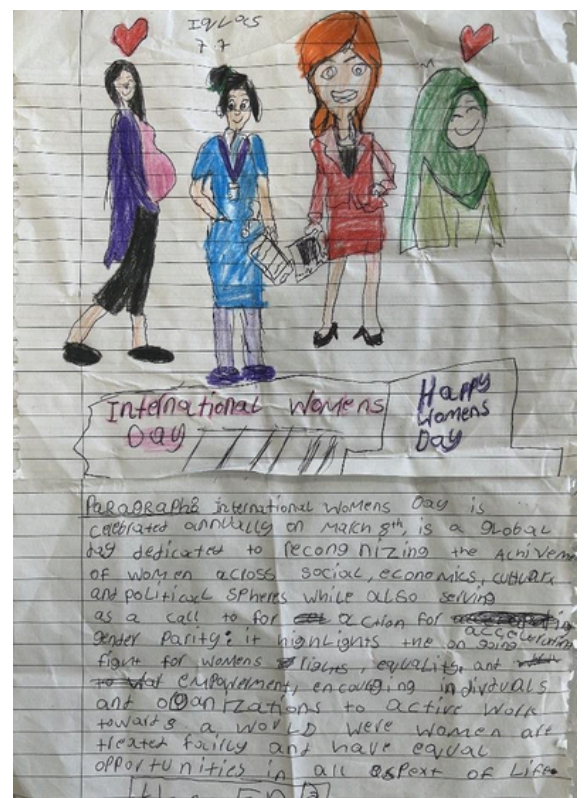 Iqlas
7.7
International Womens
Day
Happy
Womens
Day
Paragraph: International Womens Day is
celebrated annually on March 8th, is a global
day dedicated to recongnizing the Achivem
of women across social, economics, cultural
and political spheres while also serving
as a call to for action for
accelerating
gender parity: it highlights the on going
fight for womens rights, equality, and
empowerment, encouging indivduals
and oganizations to active work
towards a WORLD were women are
treated fairly and have equal
opportunities in all aspext of Life.